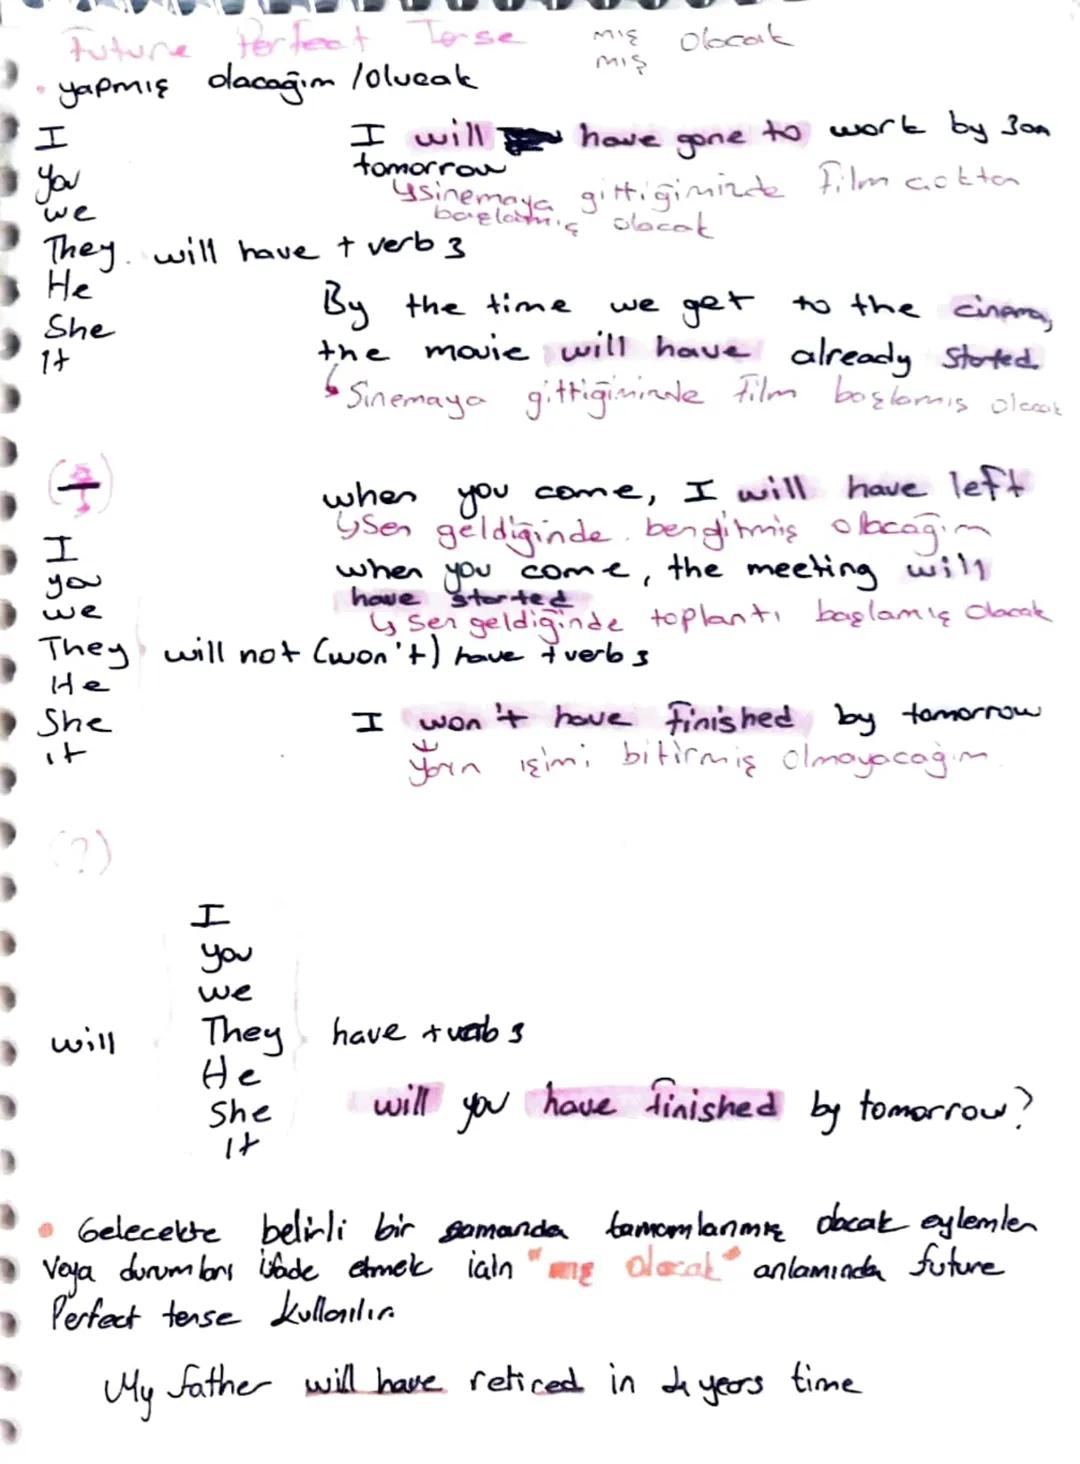 Future Perfect Tense mış olacak
miş
• yapmış olacağım /olucak
I
I will have gone to work by 3am
tomorrow
you
↳ sinemaya gittiğimizde film çoktan
başlamış olacak
we
They will have + verb 3
He
She
It
By the time we get to the cinema,
the movie will have already started
↳ Sinemaya gittiğimizde film başlamış olacak
(-)
when you come, I will have left
↳ Sen geldiğinde ben gitmiş olacağım
I
you
when you come, the meeting will
have started
we
↳ Sen geldiğinde toplantı başlamış olacak
They will not (won't) have + verb 3
He
She
it
I won't have finished by tomorrow
Yarın işimi bitirmiş olmayacağım
(?)
I
you
we
will They have + verb 3
He
She
It
will you have finished by tomorrow?
• Gelecekte belirli bir zamanda tamamlanmış olacak eylemler
veya durumları ifade etmek için "mış olacak" anlamında future
Perfect tense kullanılır.
My father will have retired in years time